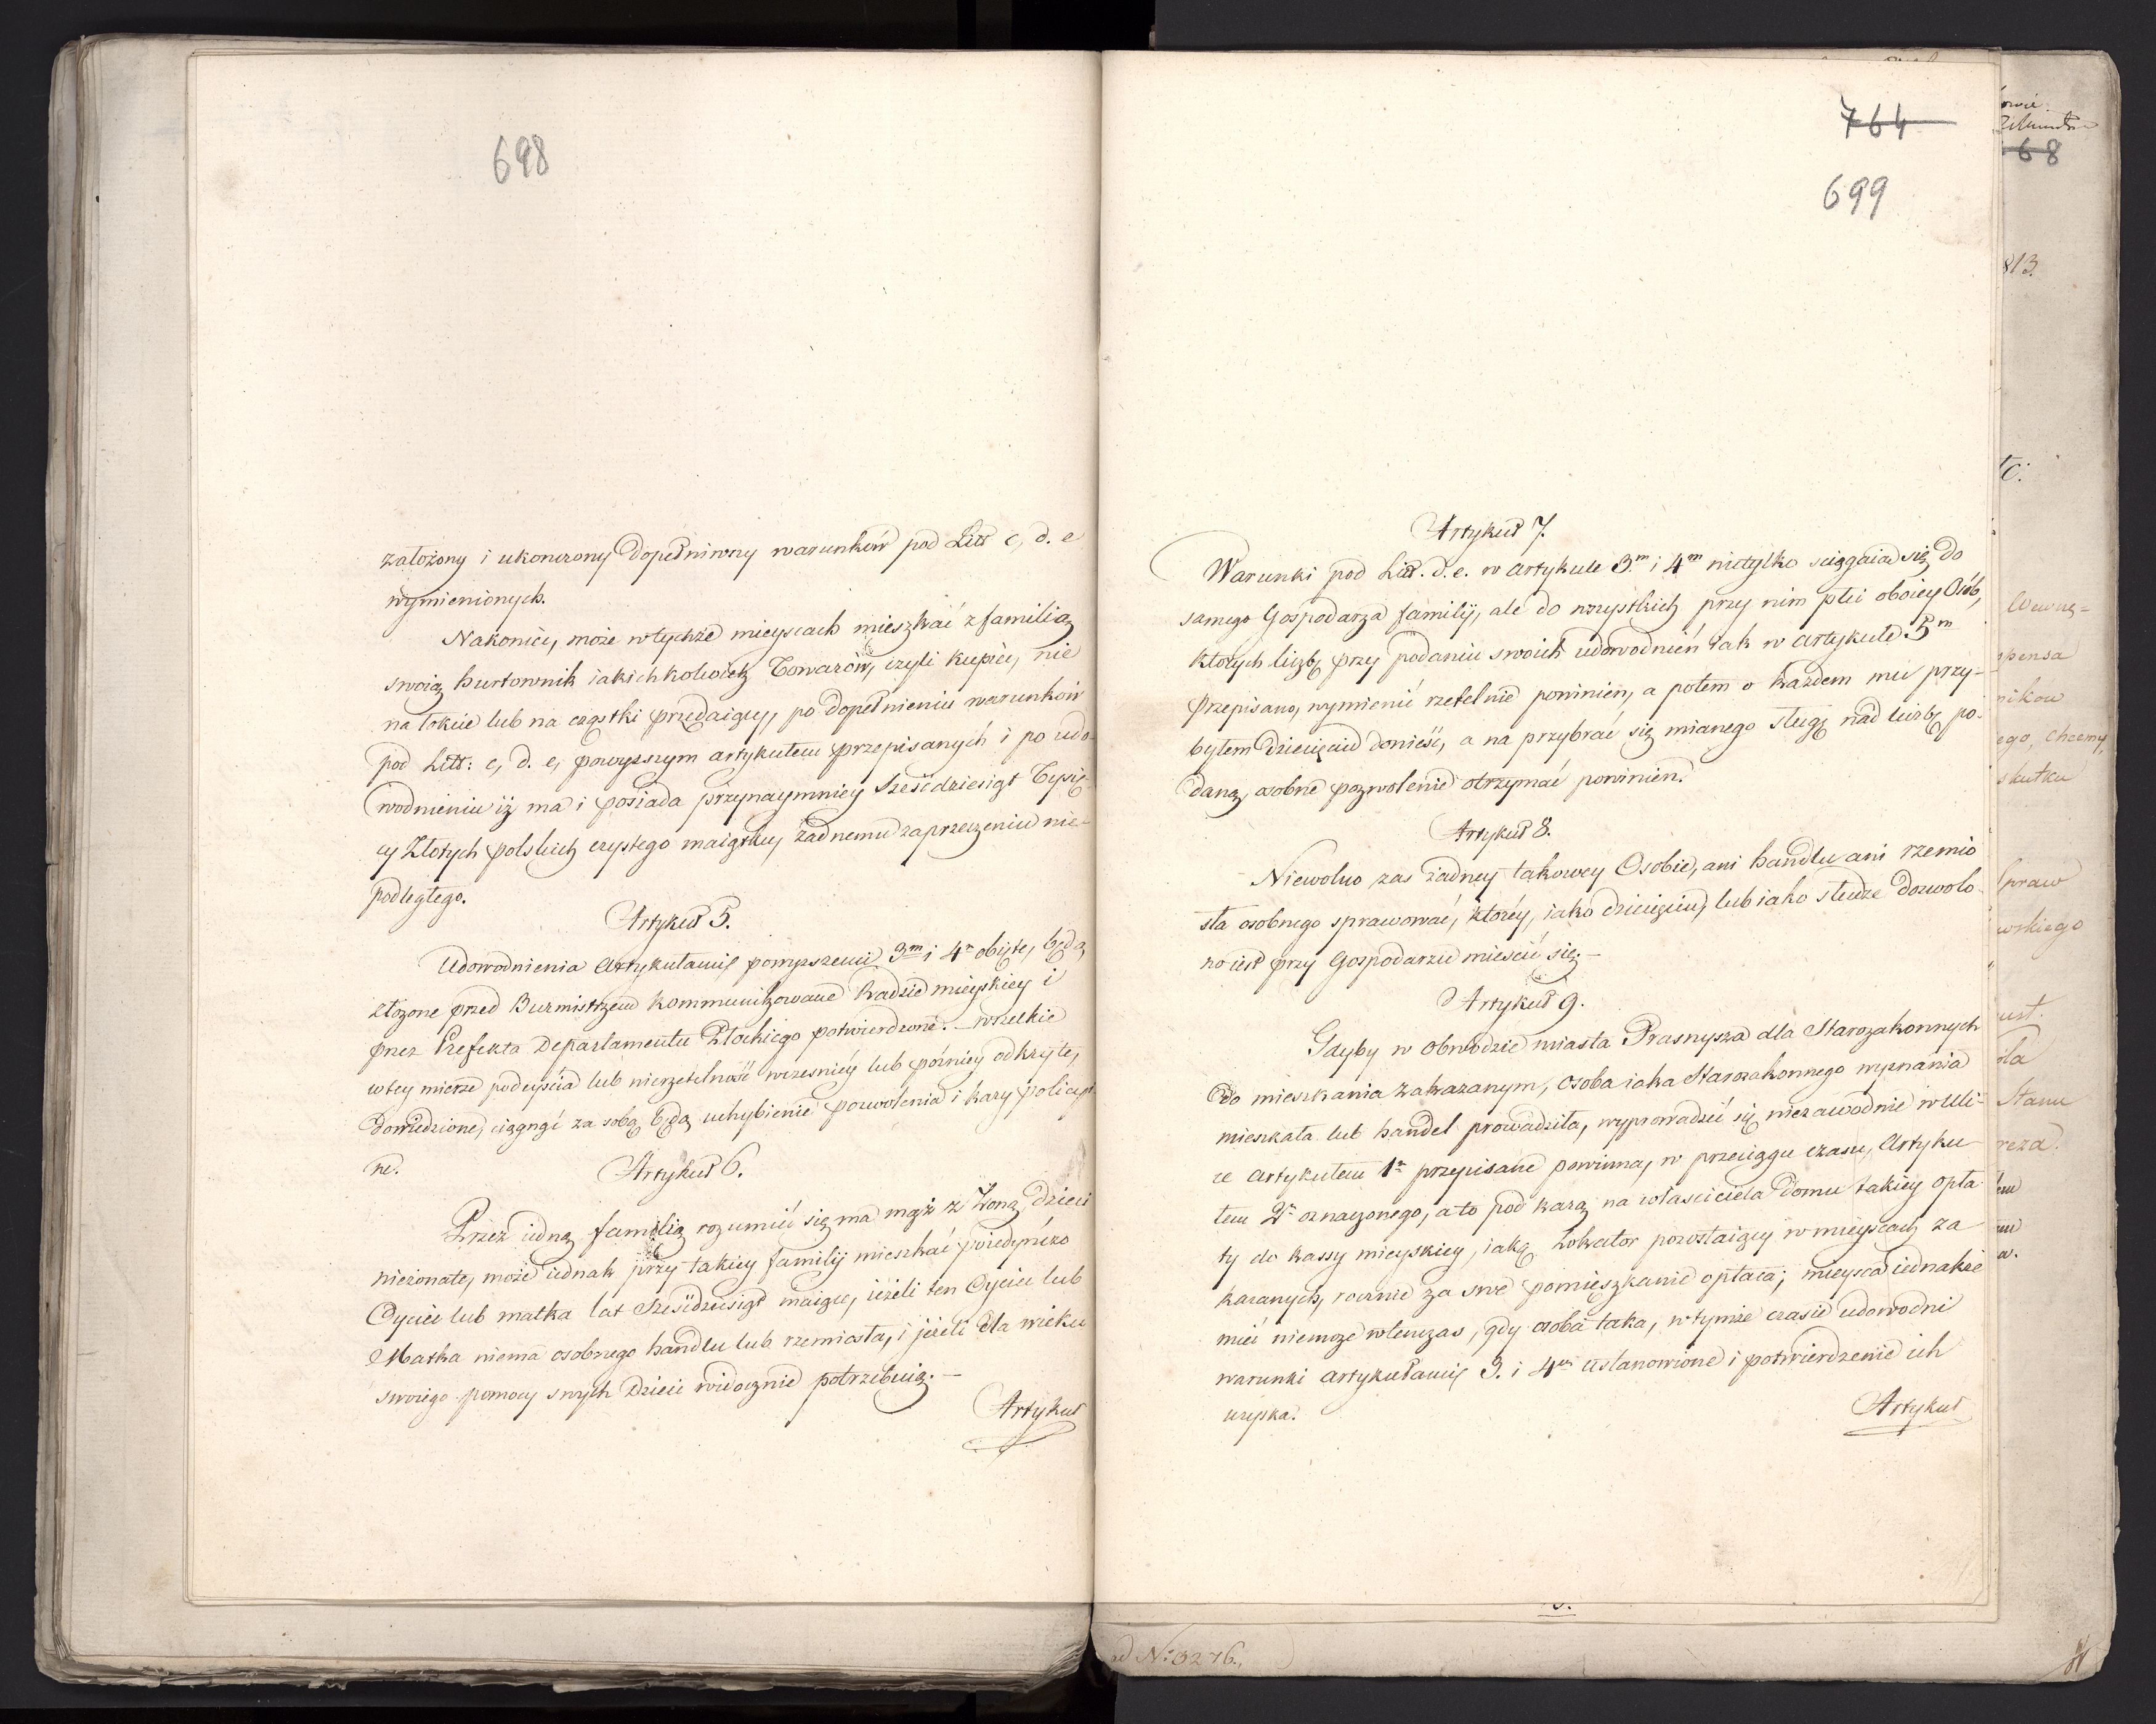 698
założony i ukonczony dopełniwszy warunków pod Litt c, d. e
wymienionych.
Nakoniec, może wtychże mieyscach mieszkać z familią
swoią hurtownik iakichkolwiek Towarów, czyli kupiec, nie
na łokcie lub na cząstki przedaiący, po dopełnieniu warunków
pod Litt: c, d. e, powyższym artykułem przepisanych i po udo-
wodnieniu iż ma i posiada przynaymniey Sześćdziesiąt Tysię-
cy Złotych polskich czystego maiątku, żadnemu zaprzeczeniu nie-
podległego.
Artykuł 5.
Udowodnienia Artykułami powyższemi 3m i 4m obięte, będą
złożone przed Burmistrzem kommunikowane Radzie mieyskiey i
przez Prefekta Departamentu Płockiego potwierdzone. – wszelkie
w tey mierze podeyścia lub nierzetelność wcześniey lub pózniey odkryte,
dowiedzione, ciągnąć za sobą będą uchybienie pozwolenia i kary policyi-
ne.
Artykuł 6.
Przez iedną familią rozumieć się ma mąż z Żoną, dzieci
nieżonate, może iednak przy takiey familij mieszkać poiedyńczo
Oyciec lub matka lat Sześćdziesiąt maiący, ieżeli ten Oyciec lub
Matka niema osobnego handlu lub rzemiosła, i jeżeli dla wieku
swoiego pomocy swych dzieci widocznie potrzebuią. –
Artykuł
764
699
Artykuł 7.
Warunki pod Litt. d. e. w artykule 3.m i 4m nietylko sciągaią się do
samego Gospodarza familij, ale do wszystkich przy nim płci oboiey Osób,
których liczbę przy podaniu swoich udowodnień iak w artykule 5m
przepisano, wymienić rzetelnie powinien, a potem o każdem mu przy-
byłem dziecięciu donieść, a na przybrać się mianego sługę nad liczbę po-
daną, osobne pozwolenie otrzymać powinien.
Artykuł 8.
Niewolno zas żadney takowey Osobie, ani handlu ani rzemio
sła osobnego sprawować, któréy, iako dziecięciu, lub iako słudze dozwolo-
no iest przy Gospodarzu mieścić się. –
Artykuł 9.
Gdyby w obwodzie miasta Prasnysza dla Starozakonnych
do mieszkania zakazanym, osoba iaka Starozakonnego wyznania
mieszkała lub handel prowadziła, wyprowadzić się niezawodnie w Uli-
ce artykułem 1m przepisane powinna, w przeciągu czasu, Artyku
łem 2m oznaczonego, a to pod karą na właściciela domu takiey opła
ty do kassy mieyskiey, iaką Lokator pozostaiący w mieyscach za
kazanych, rocznie za swe pomieszkanie opłaca; mieysca iednakże
mieć niemoże wtenczas, gdy osoba taka, w tymże czasie udowodni
warunki artykułami 3. i 4m ustanowione i potwierdzenie ich
uzyska.
Artykuł
68
813.
ego, chcemy,
skutku
praw
wskiego
ust.
dla
Stanu
ad No: 3276.